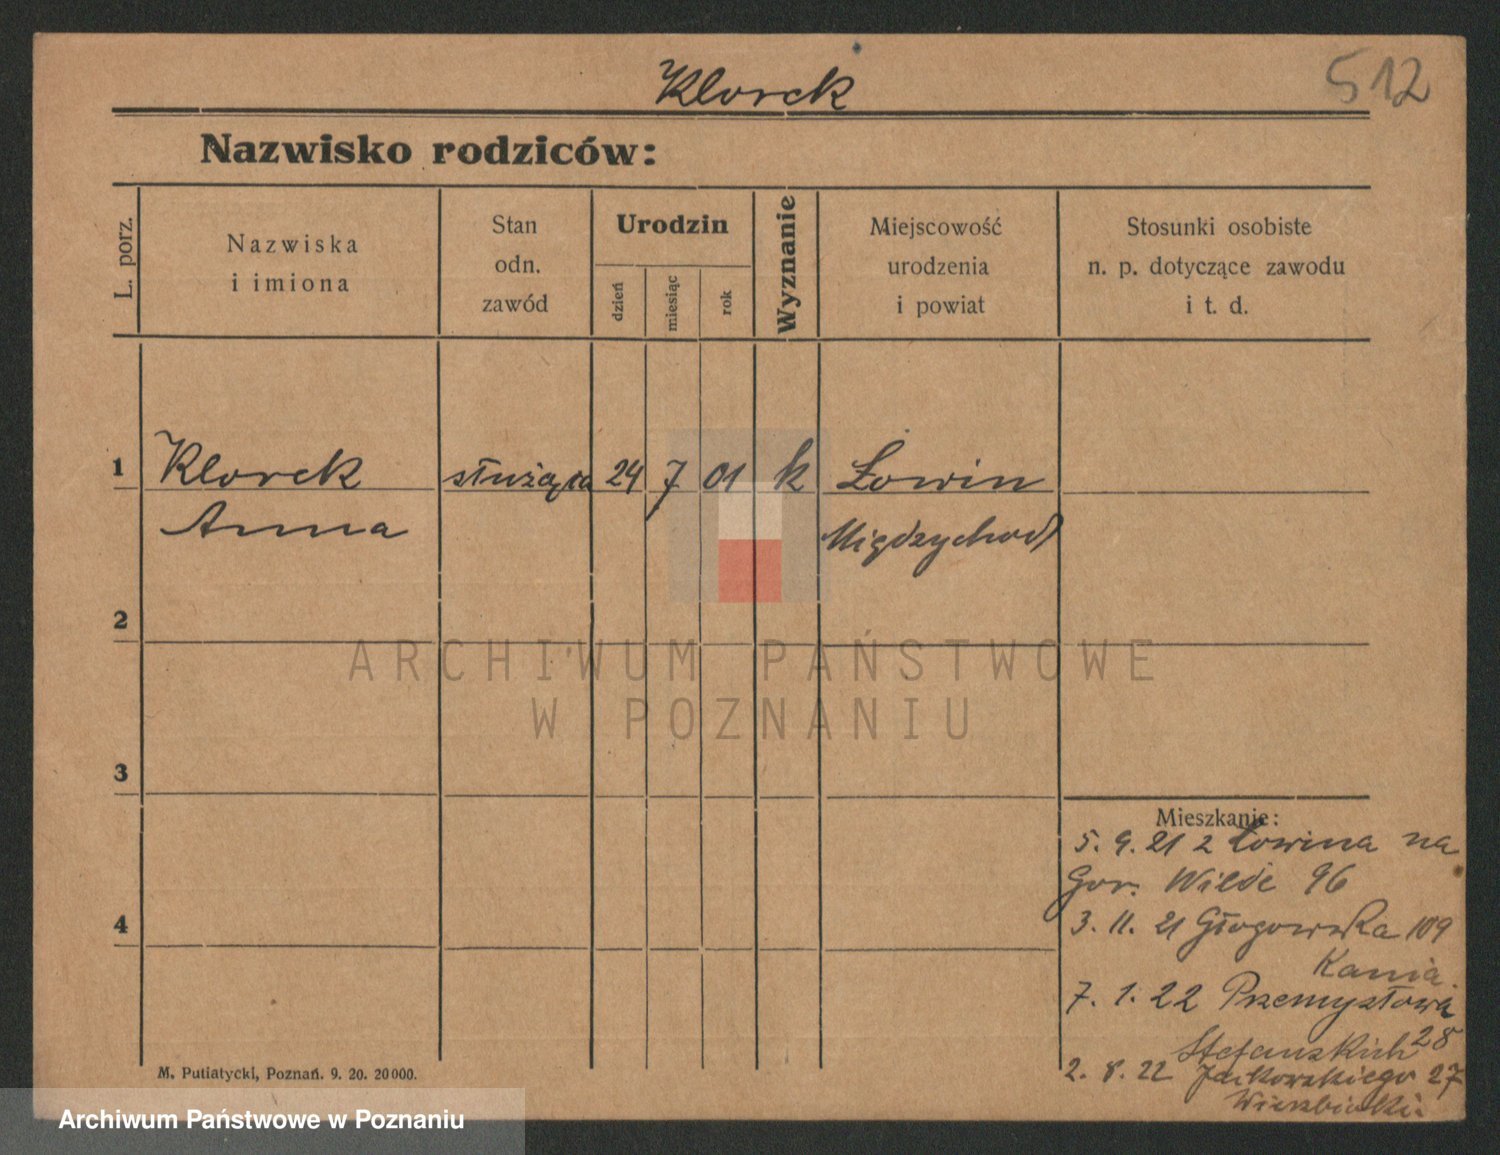 Klorek
512
Nazwisko rodziców:
L. porz.
Nazwiska
i imiona
Stan
odn.
zawód
Urodzin
dzień
miesiąc
rok
Wyznanie
Miejscowość
urodzenia
i powiat
Stosunki osobiste
n. p. dotyczące zawodu
i t. d.
1 Klorek służąca 24 7 01 k Łowin
Anna Międzychod
2
ARCHIWUM PAŃSTWOWE
W POZNANIU
3
Mieszkanie:
5. 9. 21 z Łowina na
Gor. Wilde 96
4
3. 11. 21 Głogowska 109
Kania
7. 1. 22 Przemysłowa
28
Stefanskich
2. 8. 22 Jackowskiego 27
M. Putiatycki, Poznań. 9. 20. 20000.
Archiwum Państwowe w Poznaniu